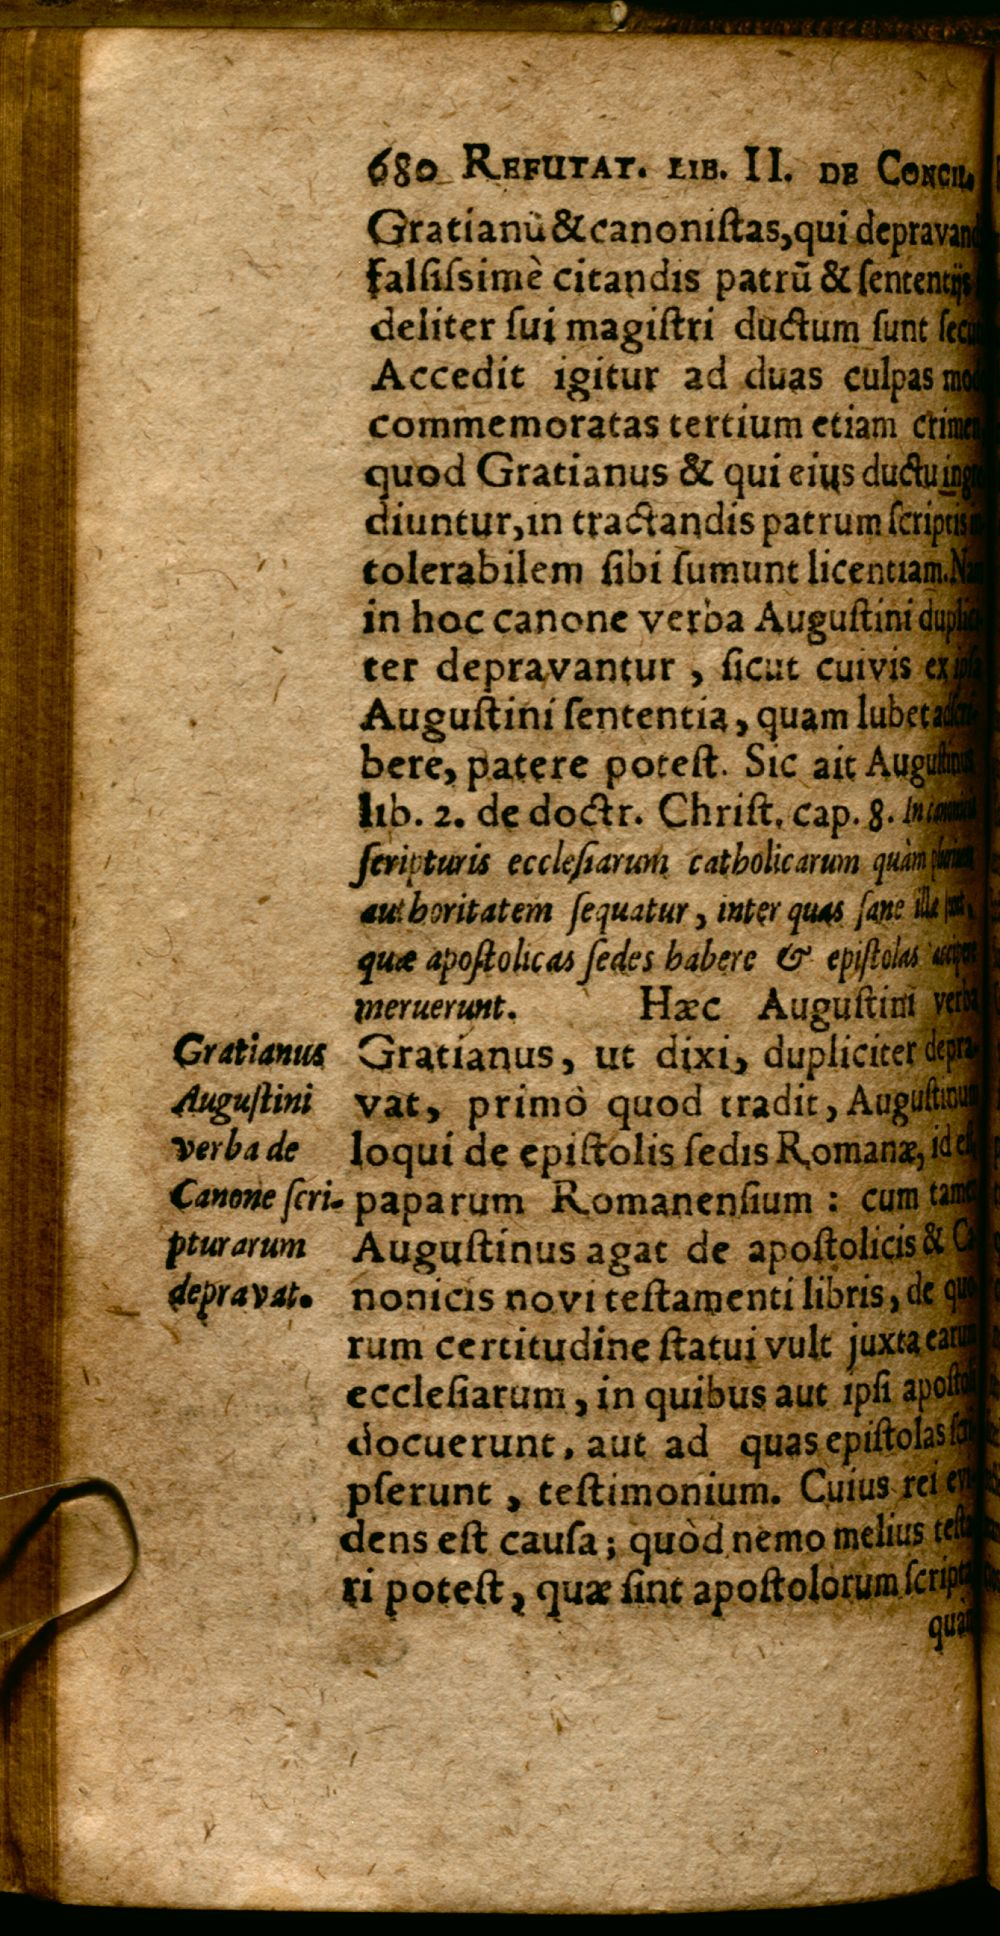 680 REFUTAT. LIB. II. DE CONCIL.
Gratianū & canonistas, qui depravand
falsissimè citandis patrū & sententijs
deliter sui magistri ductum sunt secu
Accedit igitur ad duas culpas mod
commemoratas tertium etiam crimen
quod Gratianus & qui eius ductu ingre
diuntur, in tractandis patrum scriptis in
tolerabilem sibi sumunt licentiam. Nam
in hoc canone verba Augustini duplici
ter depravantur, sicut cuivis ex ipsa
Augustini sententia, quam lubet adscri-
bere, patere potest. Sic ait Augustinus
lib. 2. de doctr. Christ. cap. 8. In canonicis
scripturis ecclesiarum catholicarum quàm plurium
authoritatem sequatur, inter quas sane illæ sint,
quæ apostolicas sedes habere & epistolas accipere
meruerunt. Hæc Augustini verba
Gratianus, ut dixi, dupliciter depra-
vat, primò quod tradit, Augustinum
loqui de epistolis sedis Romanæ, id est
paparum Romanensium: cum tamen
Augustinus agat de apostolicis & Ca
nonicis novi testamenti libris, de quo
rum certitudine statui vult juxta earum
ecclesiarum, in quibus aut ipsi apostoli
docuerunt, aut ad quas epistolas scri
pserunt, testimonium. Cuius rei evi
dens est causa; quòd nemo melius testa
ri potest, quæ sint apostolorum scripta
quàm
Gratianus
Augustini
verba de
Canone scri-
pturarum
depravat.